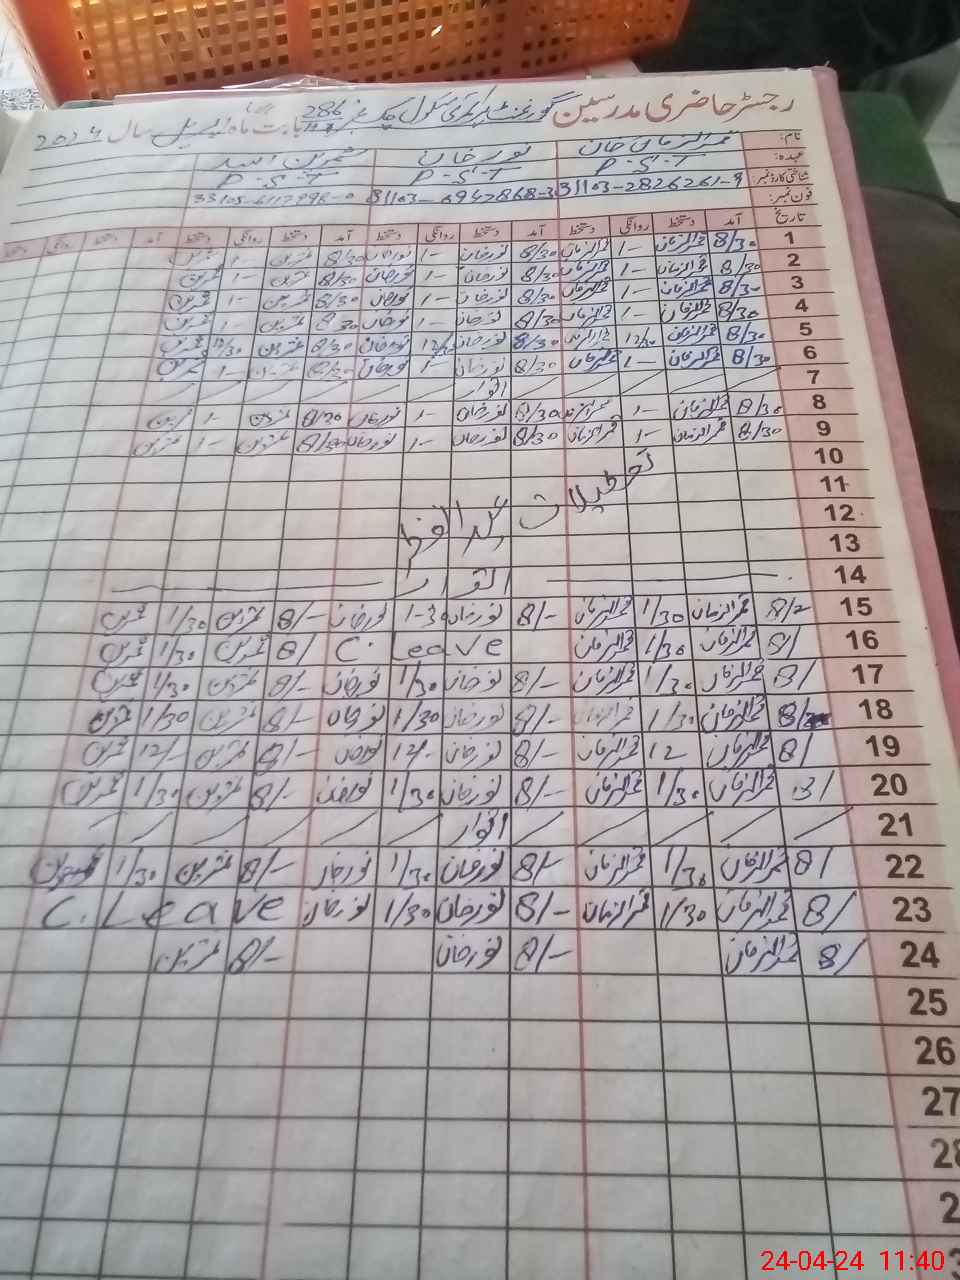 رجسٹر حاضری مدرسین گورنمنٹ پرائمری سکول چک نمبر 286 بابت ماہ اپریل سال 2024
نام: قمرالزمان خان نور خان
عہدہ: P.S.T P.S.T P.S.T
شناختی کارڈ نمبر:
فون نمبر:
تاریخ آمد دستخط روانگی دستخط آمد دستخط روانگی دستخط آمد دستخط روانگی دستخط
1 8/30 قمرالزمان 1- قمرالزمان 8/30 نورخان 1- نورخان 8/30 ثمرین 1- ثمرین
2 8/30 قمرالزمان 1- قمرالزمان 8/30 نورخان 1- نورخان 8/30 ثمرین 1- ثمرین
3 8/30 قمرالزمان 1- قمرالزمان 8/30 نورخان 1- نورخان 8/30 ثمرین 1- ثمرین
4 8/30 قمرالزمان 1- قمرالزمان 8/30 نورخان 1- نورخان 8/30 ثمرین 1- ثمرین
5 8/30 قمرالزمان 12/30 قمرالزمان 8/30 نورخان نورخان 8/30 ثمرین 12/30 ثمرین
6 8/30 قمرالزمان 1- قمرالزمان 8/30 نورخان 1- نورخان 8/30 ثمرین 1- ثمرین
7 اتوار
8 8/30 قمرالزمان 1- قمرالزمان 8/30 نورخان 1- نورخان 8/30 ثمرین 1- ثمرین
9 8/30 قمرالزمان 1- قمرالزمان 8/30 نورخان 1- نورخان 8/30 ثمرین 1- ثمرین
10
11 تعطیلات عیدالفطر
12
13
14 اتوار
15 قمرالزمان 1/30 قمرالزمان 8/- نورخان 1-30 نورخان 8/- ثمرین 1/30 ثمرین
16 8/ قمرالزمان 1/30 قمرالزمان C. Leave 8/ ثمرین 1/30 ثمرین
17 8/ قمرالزمان 1/30 قمرالزمان 8/- نورخان 1/30 نورخان 8/- ثمرین 1/30 ثمرین
18 قمرالزمان 1/30 قمرالزمان 8/- نورخان 1/30 نورخان 8/- ثمرین 1/30 ثمرین
19 8/ قمرالزمان 12 قمرالزمان 8/- نورخان 12/- نورخان 8/- ثمرین 12/- ثمرین
20 8/ قمرالزمان 1/30 قمرالزمان 8/- نورخان 1/30 نورخان 8/- ثمرین 1/30 ثمرین
21 اتوار
22 8/ قمرالزمان 1/30 قمرالزمان 8/- نورخان 1/30 نورخان 8/- ثمرین 1/30
23 8/ قمرالزمان 1/30 قمرالزمان 8/- نورخان 1/30 نورخان C. Leave
24 8/ قمرالزمان 8/- نورخان 8/- ثمرین
25
26
27
28
24-04-24 11:40